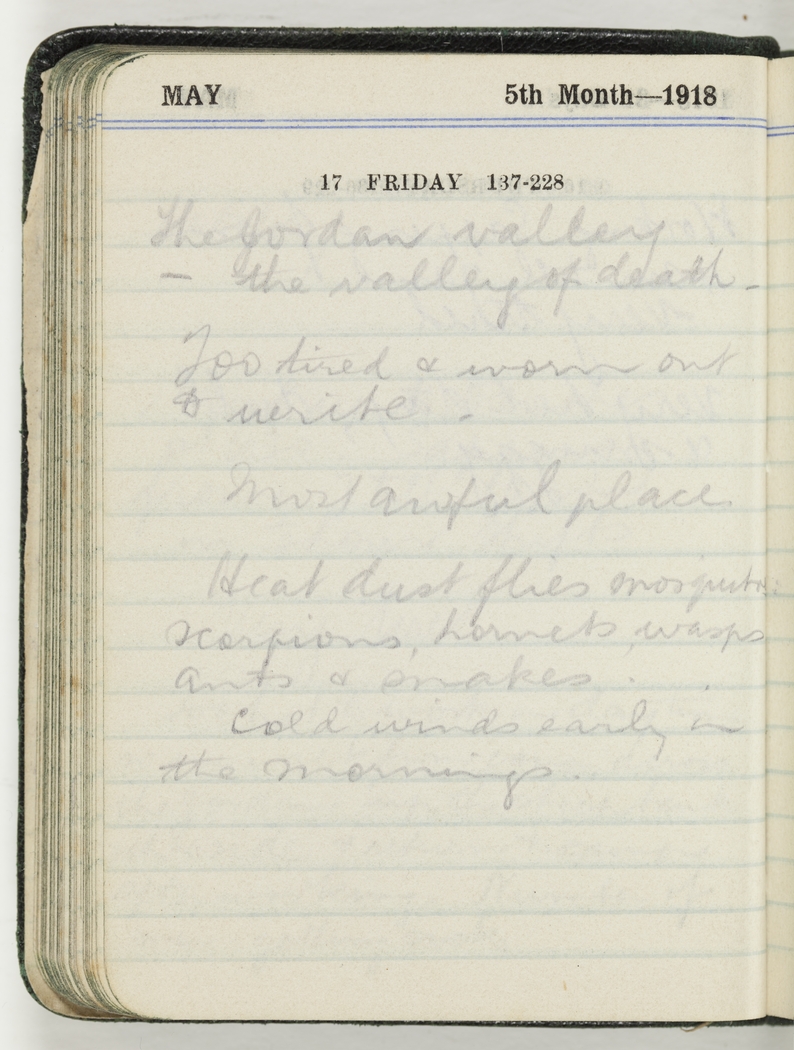 MAY 5th Month—1918
17 FRIDAY 137-228
The Jordan valley
– the valley of death –
Too tired & worn out
to write .
Most awful place
Heat dust flies
scorpions, hornets, wasps
ants & snakes .
Cold winds early in
the mornings.